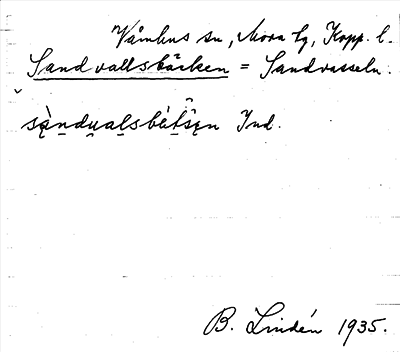 Våmhus sn, Mora tg, Kopp. l.
Sandvallsbäcken = Sandvasseln.
sạ̀ndu̯alsbɩt́sę̣n Ind.
B. Lindén 1935.